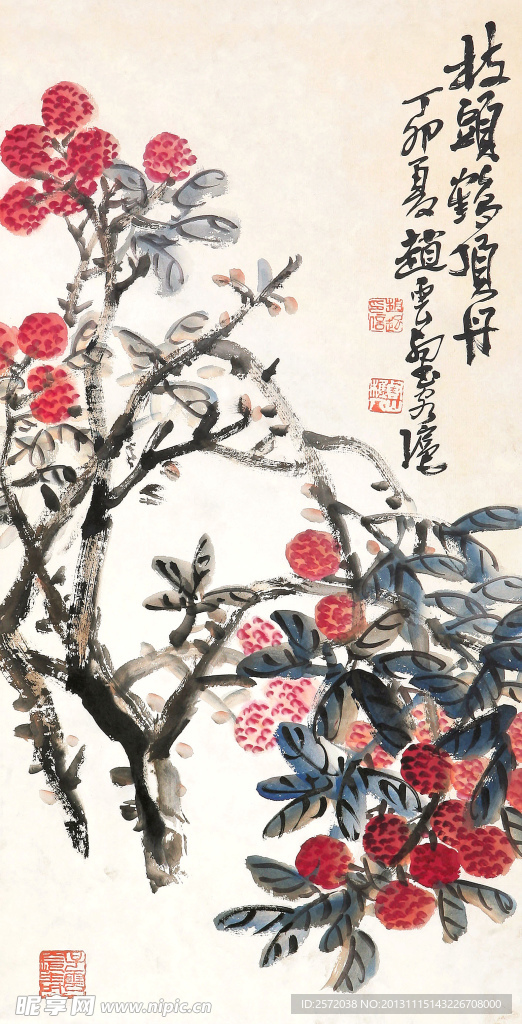 枝頭鶴頂丹
丁卯夏趙雲壑書客滬
昵享网 www.nipic.cn
ID:2572038 NO:20131115143226708000